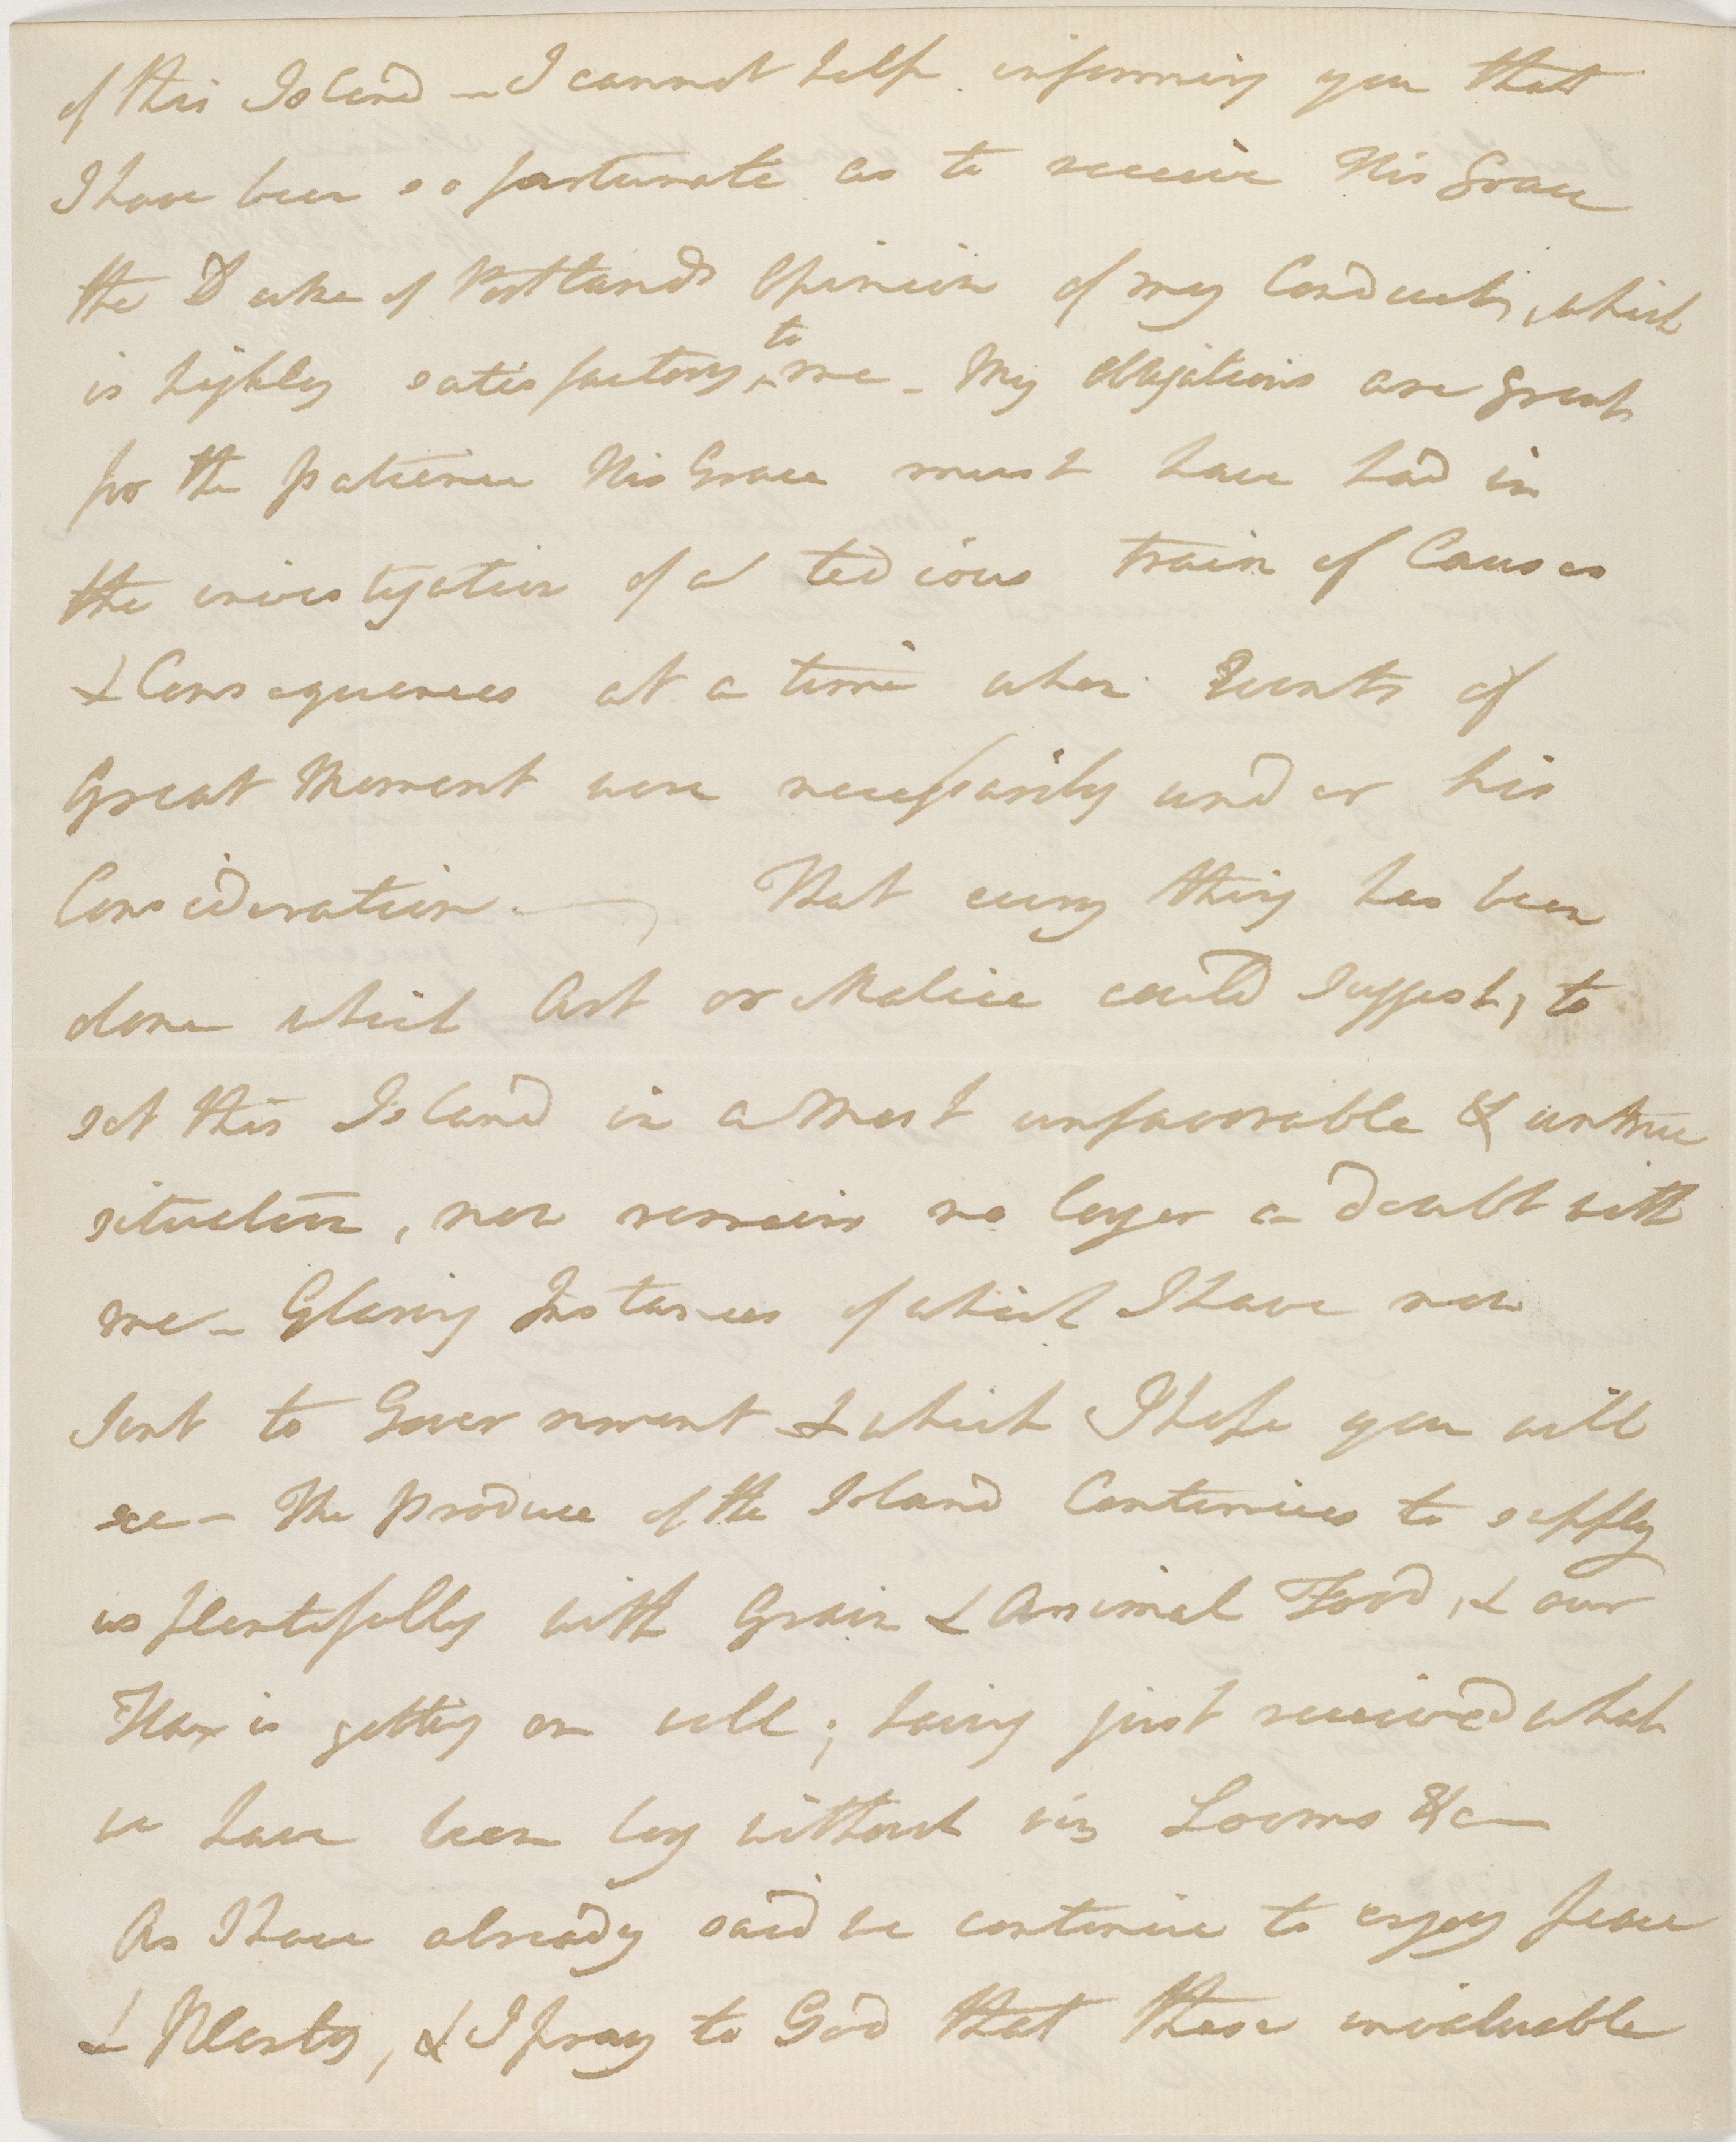 of this Island — I cannot help informing you that
I have been so fortunate as to receive His Grace
the Duke of Portlands Opinion of my Conduct, which
is highly satisfactory ^to me — My obligations are great
for the patience His Grace must have had in
the investigation of a tedious train of Causes
& Consequences at a time when Events of
Great Moment were necessarily under his
Consideration. — That every thing has been
done which Art or Malice could suggest, to
set this Island in a Most unfavorable & untrue
situation, now remains no longer a doubt with
me — Glaring Instances of which I have now
sent to Government & which I hope you will
see — The produce of the Island Continues to supply
us plentifully with Grain & Animal Food, & our
Flax is getting on well; having just received what
we have been long without viz Looms &c —
As I have already said we continue to enjoy peace
& Plenty, & I pray to God that these invaluable